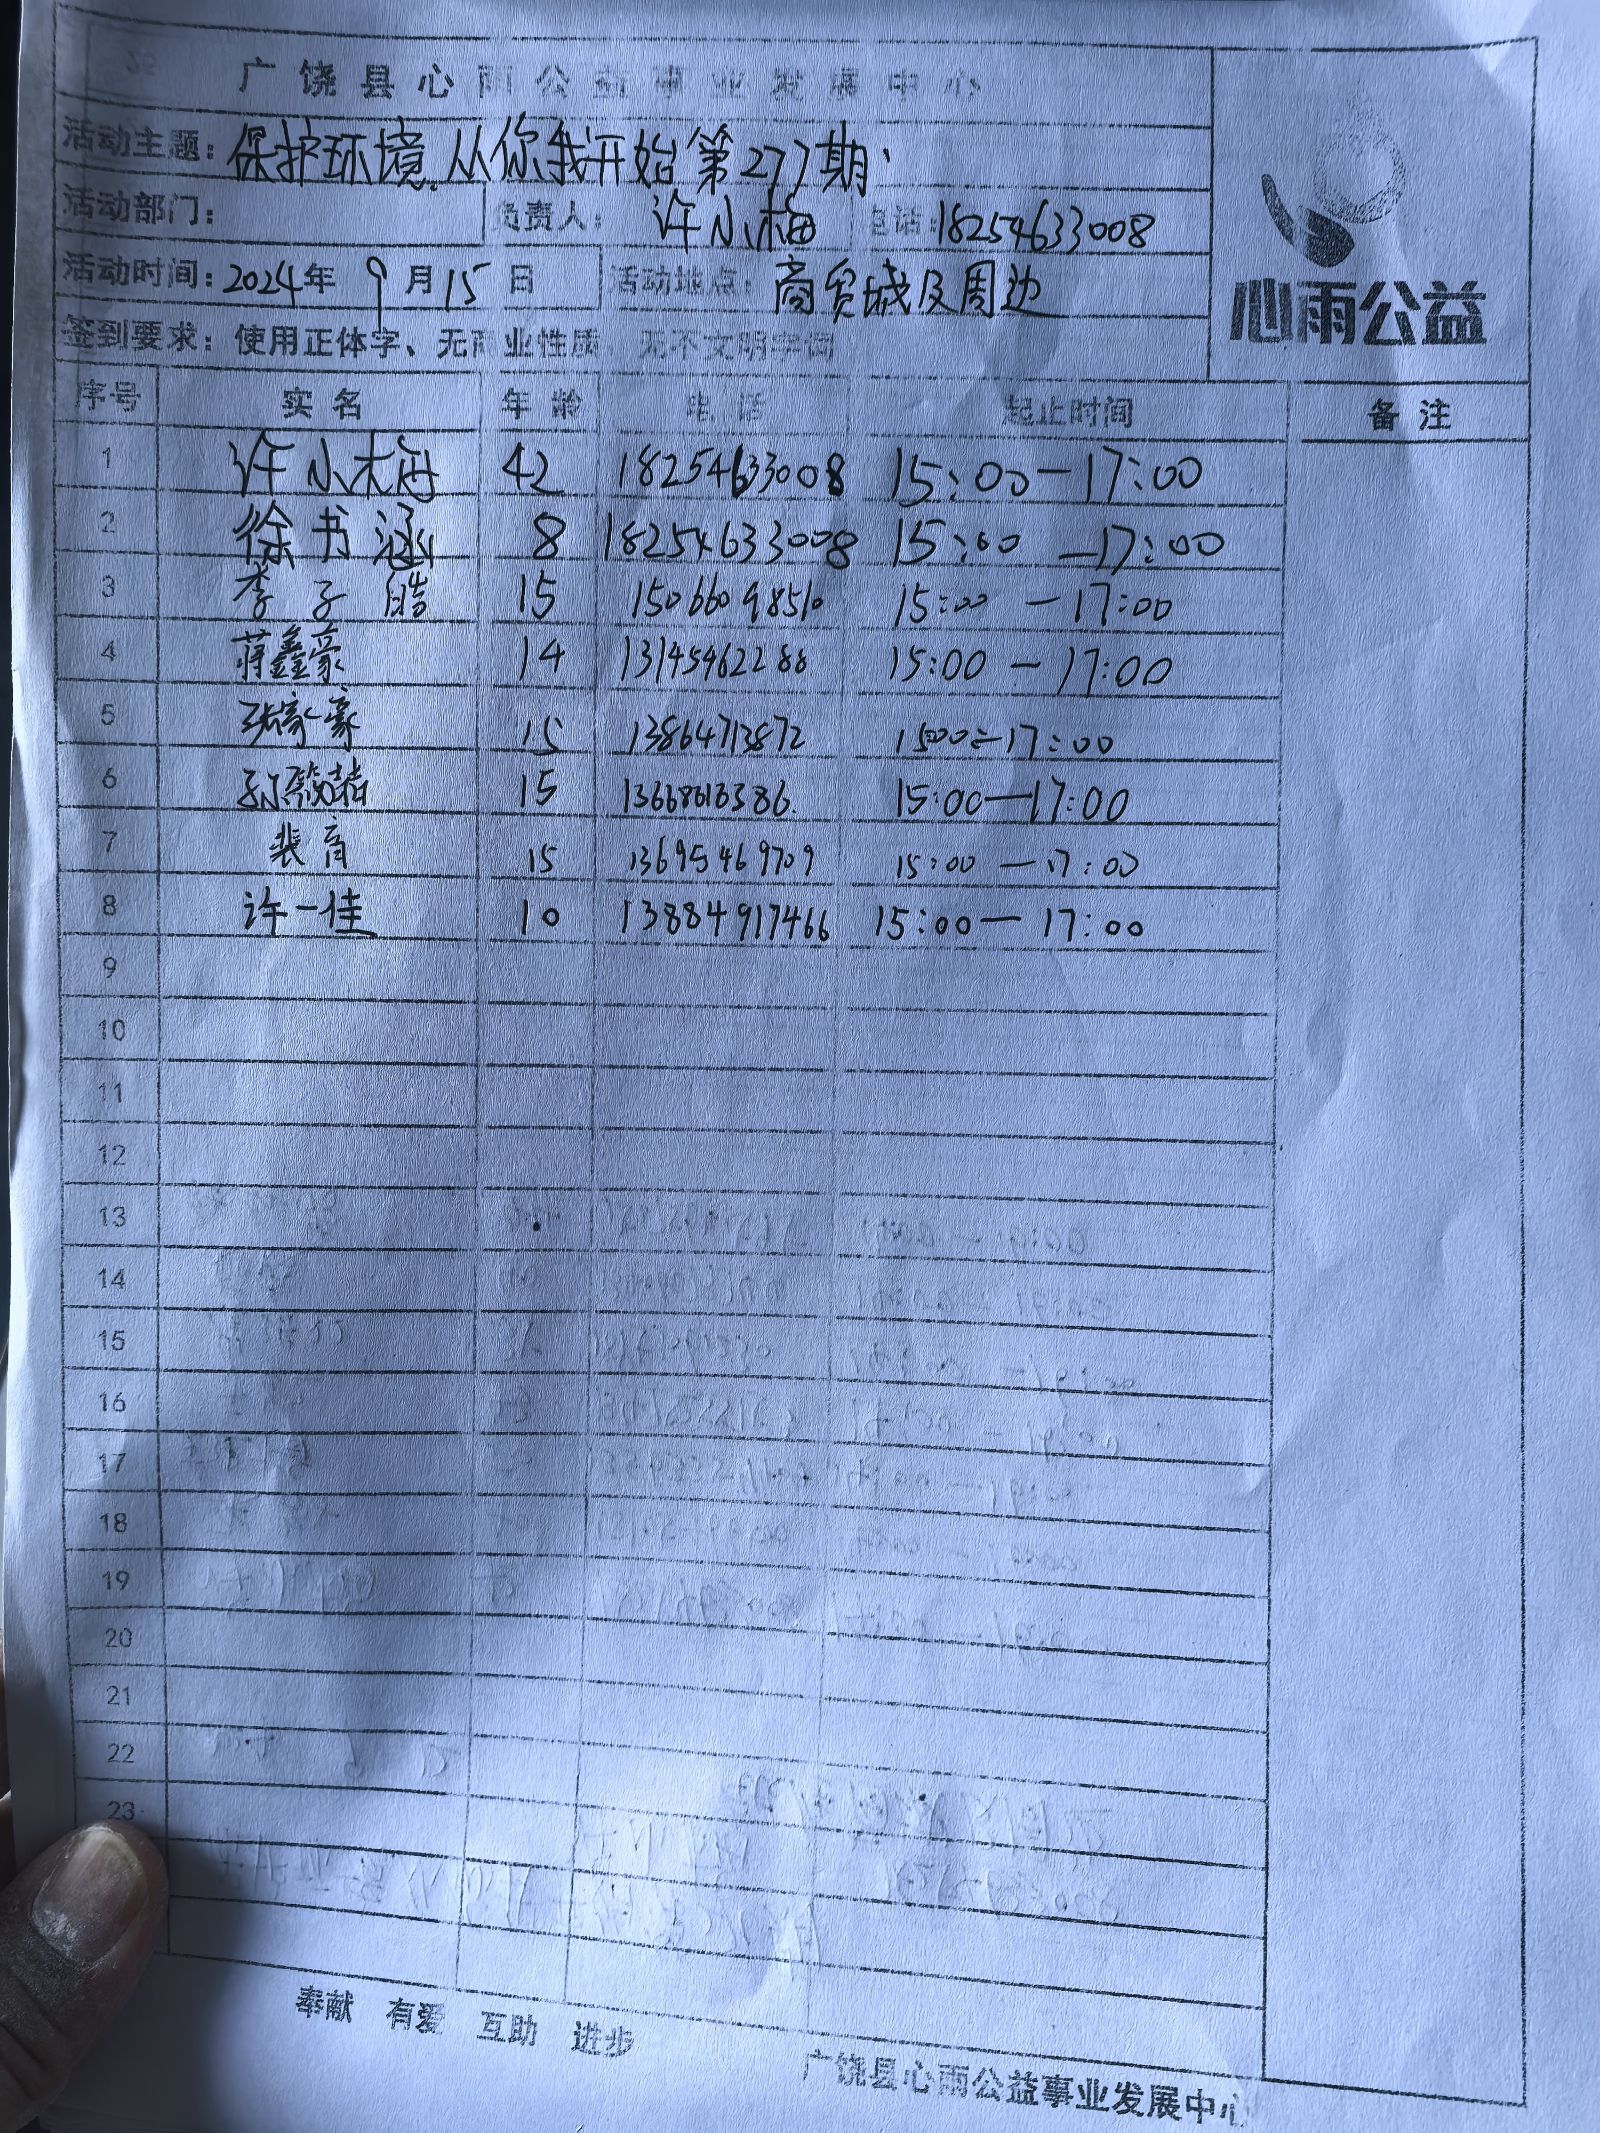 广饶县心雨公益事业发展中心
活动主题：保护环境,从你我开始第277期
活动部门： 负责人：许小梅 电话：18254633008
活动时间：2024年9月15日 活动地点：商贸城及周边
心雨公益
签到要求：使用正体字、无商业性质、无不文明字词
序号 实名 年龄 电话 起止时间 备注
1 许小梅 42 18254633008 15:00—17:00
2 徐书涵 8 18254633008 15:00—17:00
3 李子皓 15 15066098510 15:00—17:00
4 蒋鑫豪 14 13145462288 15:00—17:00
5 张家豪 15 13864713872 1500=17:00
6 15 15:00—17:00
7 裴育 15 13695469709 15:00—17:00
8 许一佳 10 13884917466 15:00—17:00
9
10
11
12
13
14
15
16
17
18
19
20
21
22
23
奉献 有爱 互助 进步
广饶县心雨公益事业发展中心